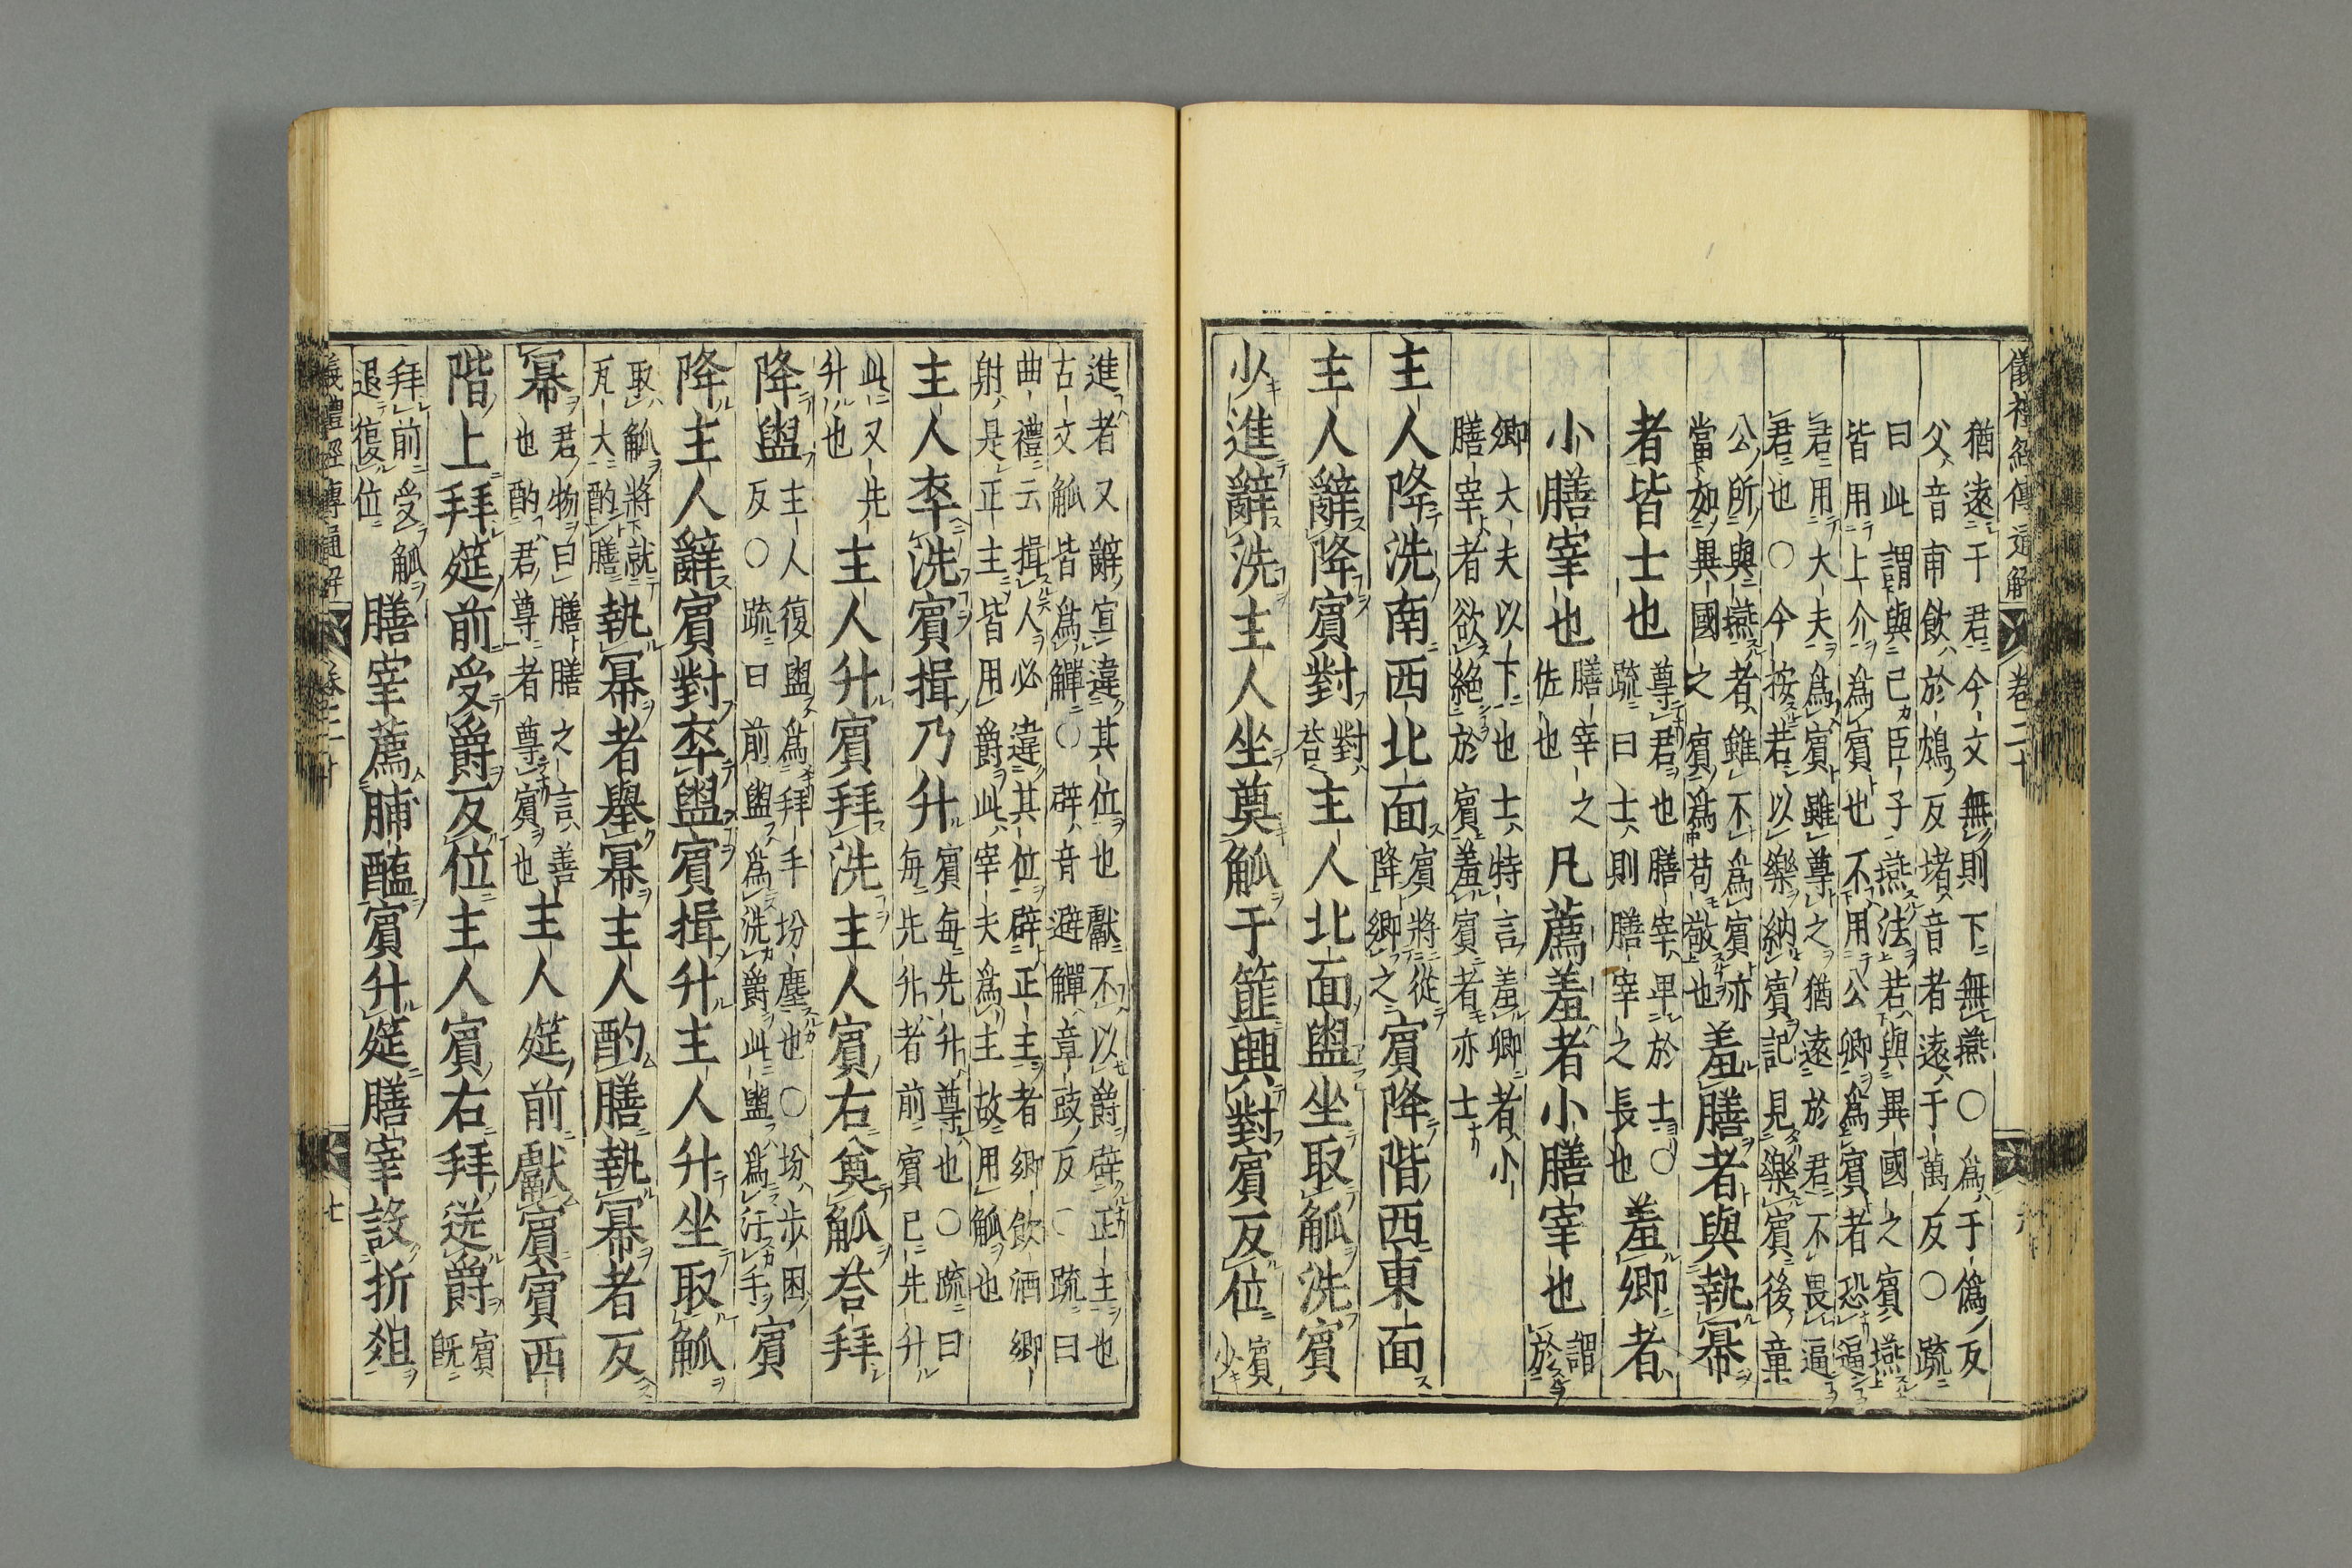 儀禮經傳通解 卷二十
猶遠于君今文無則下無燕〇爲于僞反
父音甫飲於鴆反堵音者遠于萬反〇疏
曰此謂與己臣子燕法若與異國之賓燕
皆用上介爲賓也不用公卿爲賓者恐逼
君用大夫爲賓雖尊之猶遠於君不畏逼
君也〇今按若以樂納賓記見樂賓後章
公所與燕者雖不爲賓亦
當如異國之賓爲苟敬也
羞膳者與執冪
者皆士也
尊君也膳宰卑於士〇
疏曰士則膳宰之長也
羞卿者
小膳宰也
膳宰之
佐也
凡薦羞者小膳宰也
謂
於
卿大夫以下也士特言羞卿者小
膳宰者欲絶於賓羞賓者亦士
主人降洗南西北面
賓將從
降卿之
賓降階西東面
主人辭降賓對
對
荅
主人北面盥坐取觚洗賓
少進辭洗主人坐奠觚于篚興對賓反位
賓
少
進者又辭宜違其位也獻不以爵辟正主也
古文觚皆爲觶〇辟音避觶章豉反〇疏曰
曲禮云揖人必違其位辟正主者卿飲酒卿
射是正主皆用爵此宰夫爲主故用觚也
主人卒洗賓揖乃升
賓每先升尊也〇疏曰
每先升者前賓已先升
此又先
升也
主人升賓拜洗主人賓右奠觚荅拜
降盥
主人復盥爲拜手坋塵也〇坋步困
反〇疏曰前盥爲洗爵此盥爲汙手
賓
降主人辭賓對卒盥賓揖升主人升坐取觚
取觚將就
瓦大酌膳
執冪者舉冪主人酌膳執冪者反
冪
君物曰膳膳之言善
也酌君尊者尊賓也
主人筵前獻賓賓西
階上拜筵前受爵反位主人賓右拜送爵
賓
既
拜前受觚
退復位
膳宰薦脯醢賓升筵膳宰設折俎
儀禮經傳通解 卷二十 七